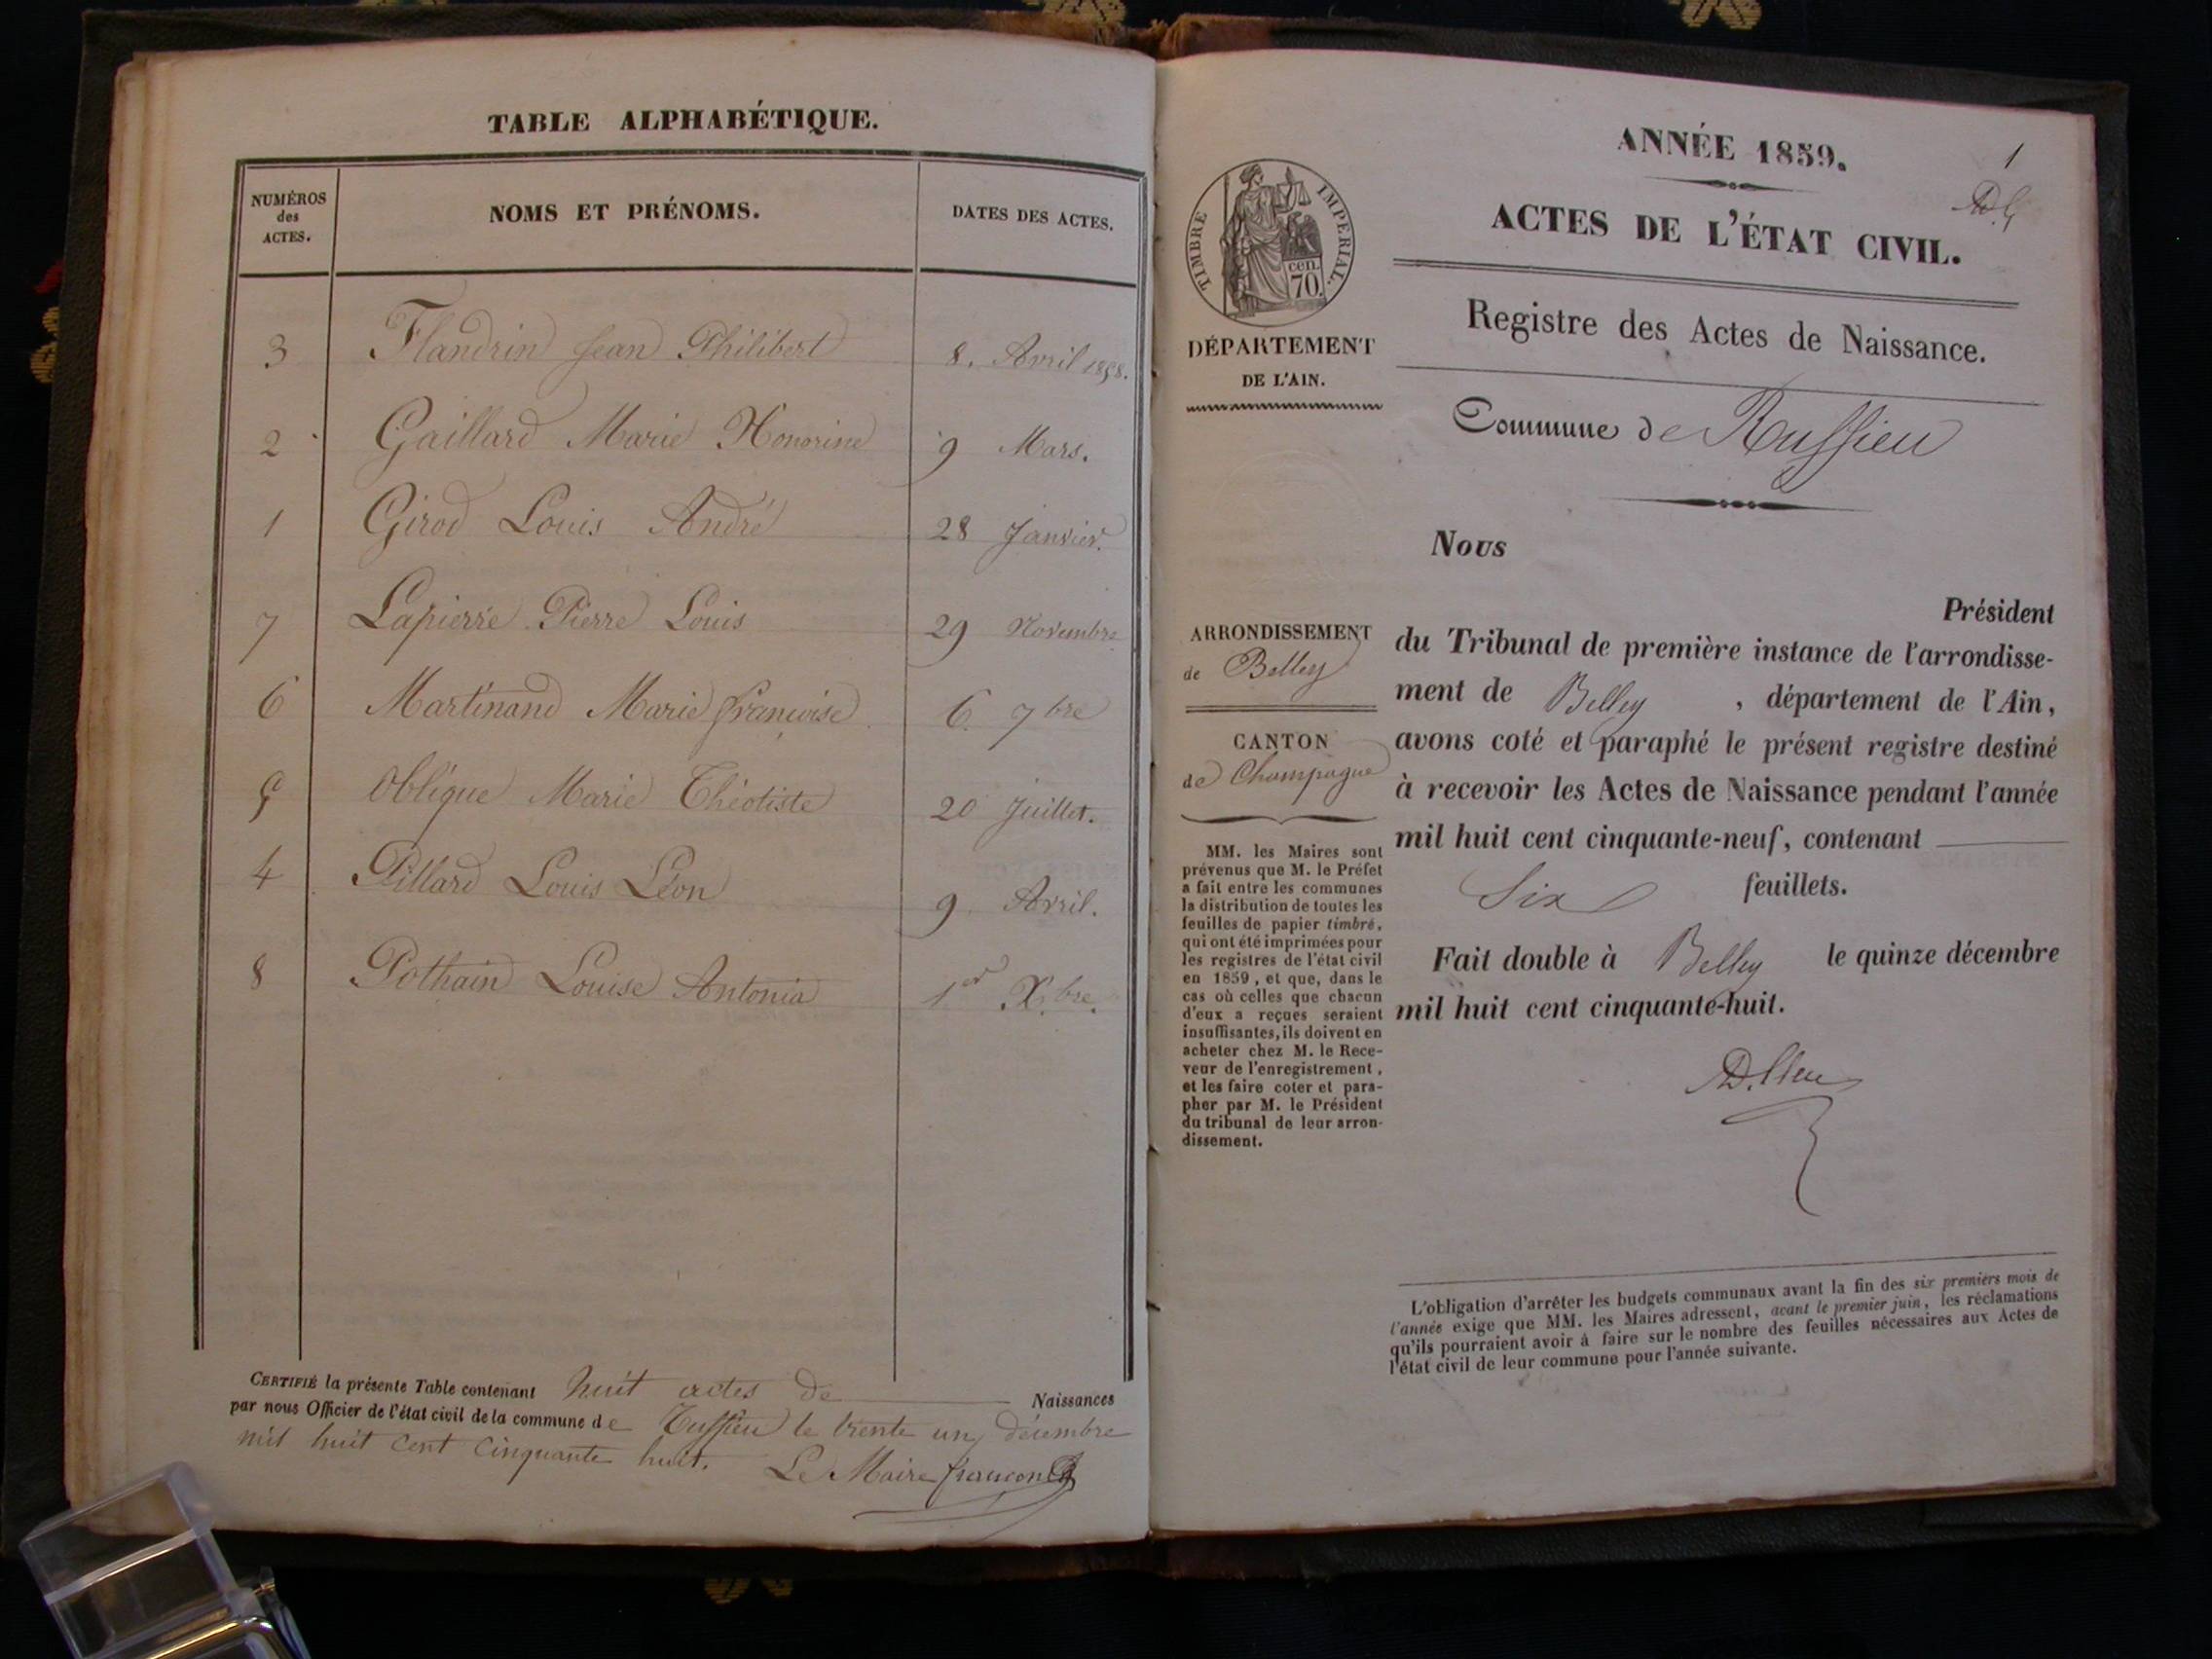 TABLE ALPHABÉTIQUE.
NUMÉROS
des
ACTES.
NOMS ET PRÉNOMS.
DATES DES ACTES.
3 Flandrin Jean Philibert 8. Avril 1858.
2 Gaillard Marie Honorine 9 Mars.
1 Girod Louis André 28 Janvier.
7 Lapierre Pierre Louis 29 Novembre
6 Martinand Marie françoise 6 7bre
5 Oblique Marie Théotiste 20 Juillet.
4 Pillard Louis Léon 9 Avril.
8 Pothain Louise Antonia 1er X.bre.
CERTIFIÉ la présente Table contenant huit actes de Naissances
par nous Officier de l'état civil de la commune de le trente un décembre
mil huit cent cinquante huit. Le Maire
ANNÉE 1859.
1
ACTES DE L'ÉTAT CIVIL.
Registre des Actes de Naissance.
Commune de Ruffieu
TIMBRE IMPERIAL.
cen.
70.
DÉPARTEMENT
DE L'AIN.
ARRONDISSEMENT
de Belley
CANTON
de Champagne
MM. les Maires sont
prévenus que M. le Préfet
a fait entre les communes
la distribution de toutes les
feuilles de papier timbré,
qui ont été imprimées pour
les registres de l'état civil
en 1859, et que, dans le
cas où celles que chacun
d'eux a reçues seraient
insuffisantes, ils doivent en
acheter chez M. le Rece-
veur de l'enregistrement,
et les faire coter et para-
pher par M. le Président
du tribunal de leur arron-
dissement.
Nous
Président
du Tribunal de première instance de l'arrondisse-
ment de Belley, département de l'Ain,
avons coté et paraphé le présent registre destiné
à recevoir les Actes de Naissance pendant l'année
mil huit cent cinquante-neuf, contenant
Six feuillets.
Fait double à Belley le quinze décembre
mil huit cent cinquante-huit.
L'obligation d'arrêter les budgets communaux avant la fin des six premiers mois de
l'année exige que MM. les Maires adressent, avant le premier juin, les réclamations
qu'ils pourraient avoir à faire sur le nombre des feuilles nécessaires aux Actes de
l'état civil de leur commune pour l'année suivante.